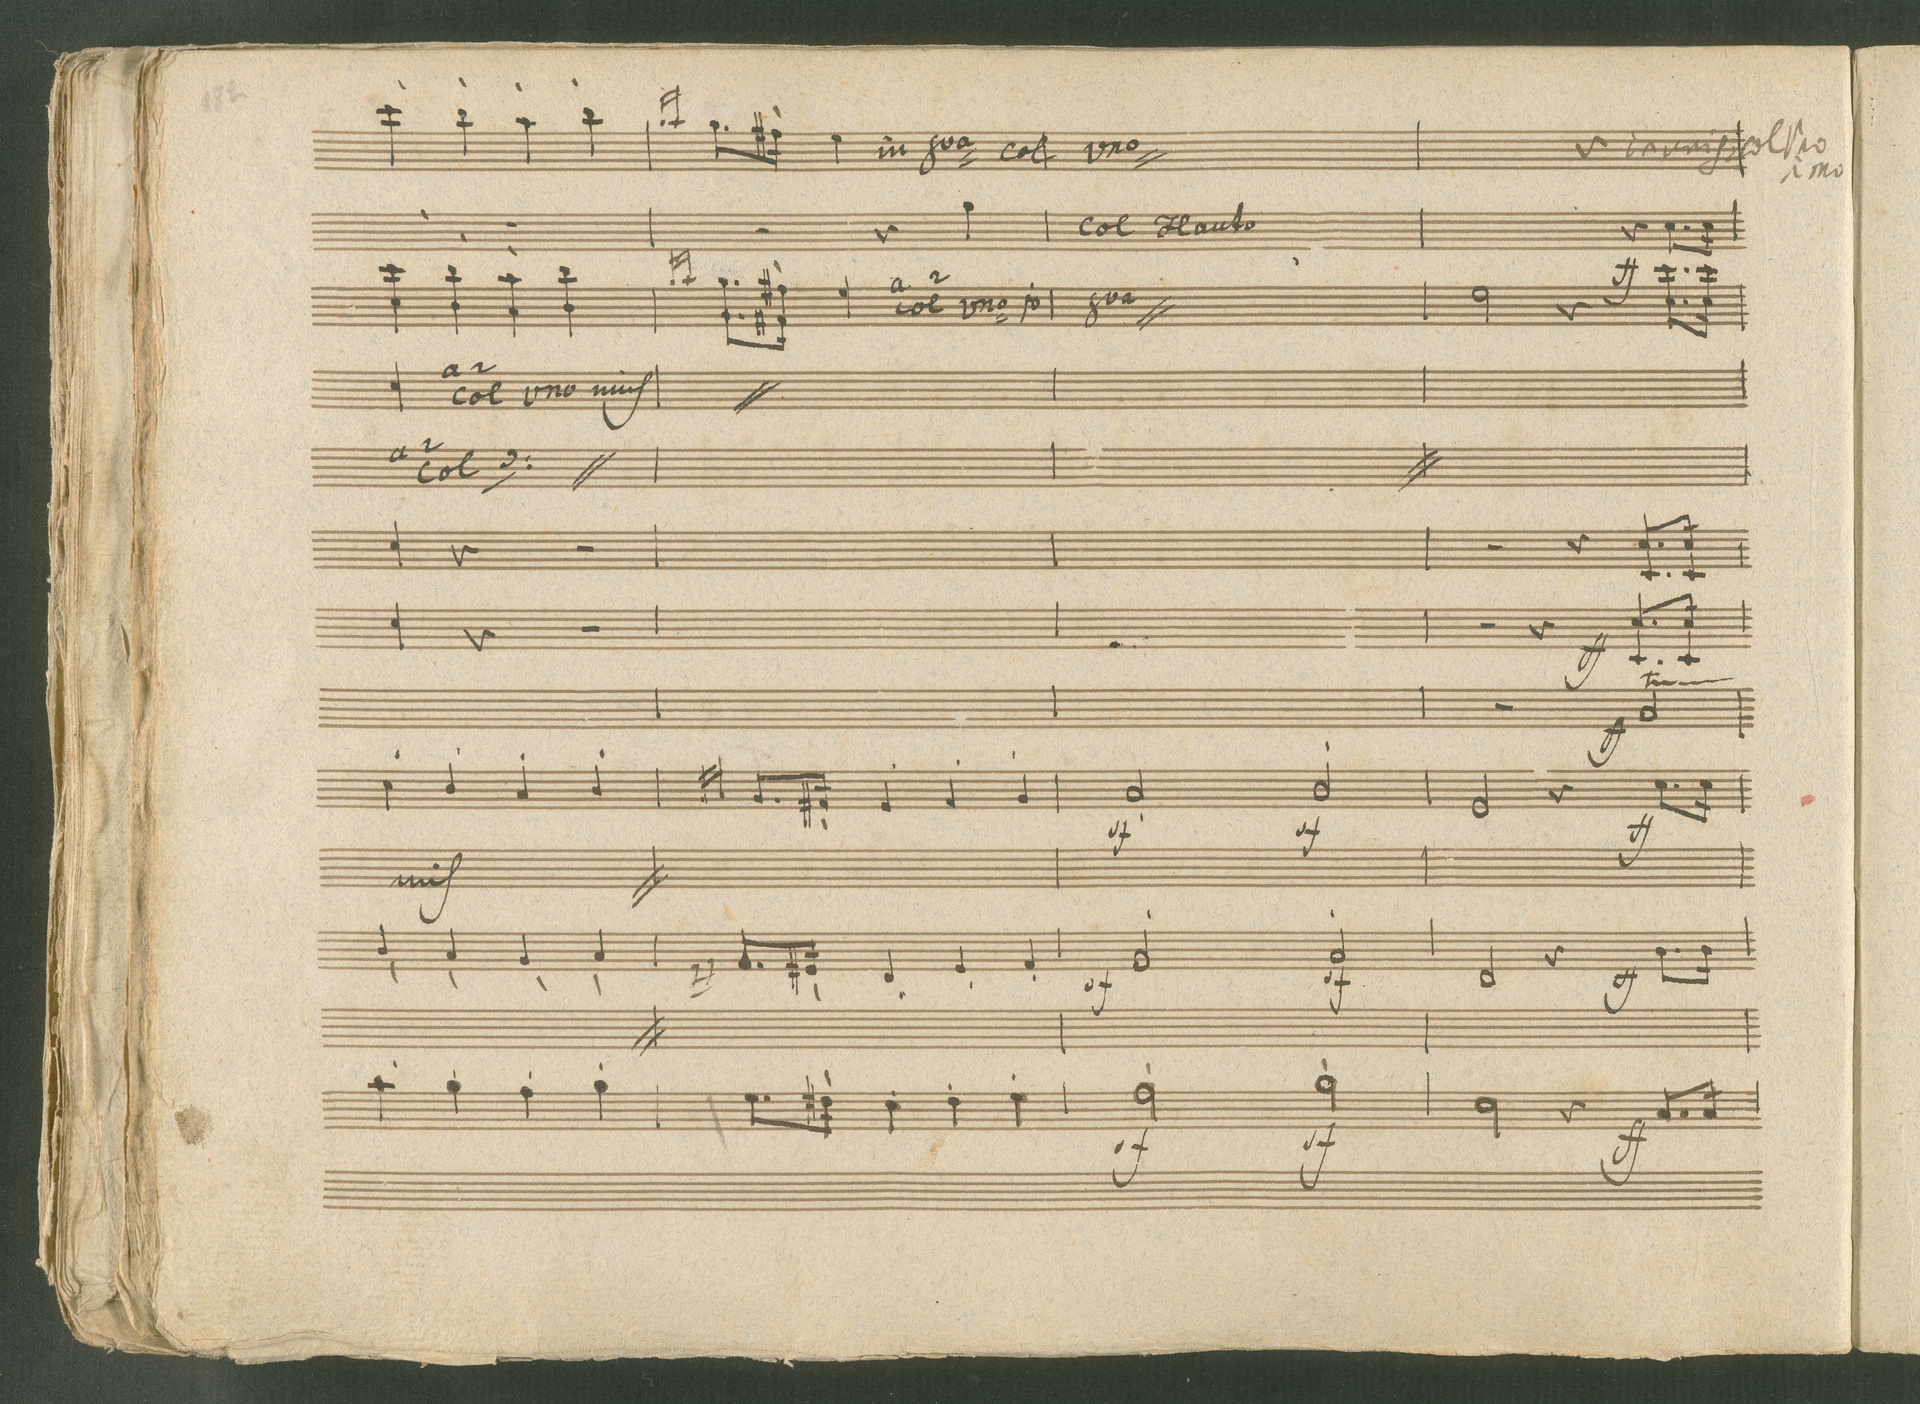 in 8va col vno
col Flauto
ff
a 2
col vno po 8va
a 2
col vno unis
a 2
col
ff
tr
ff
sf sf ff
unis
sf sf ff
sf sf ff